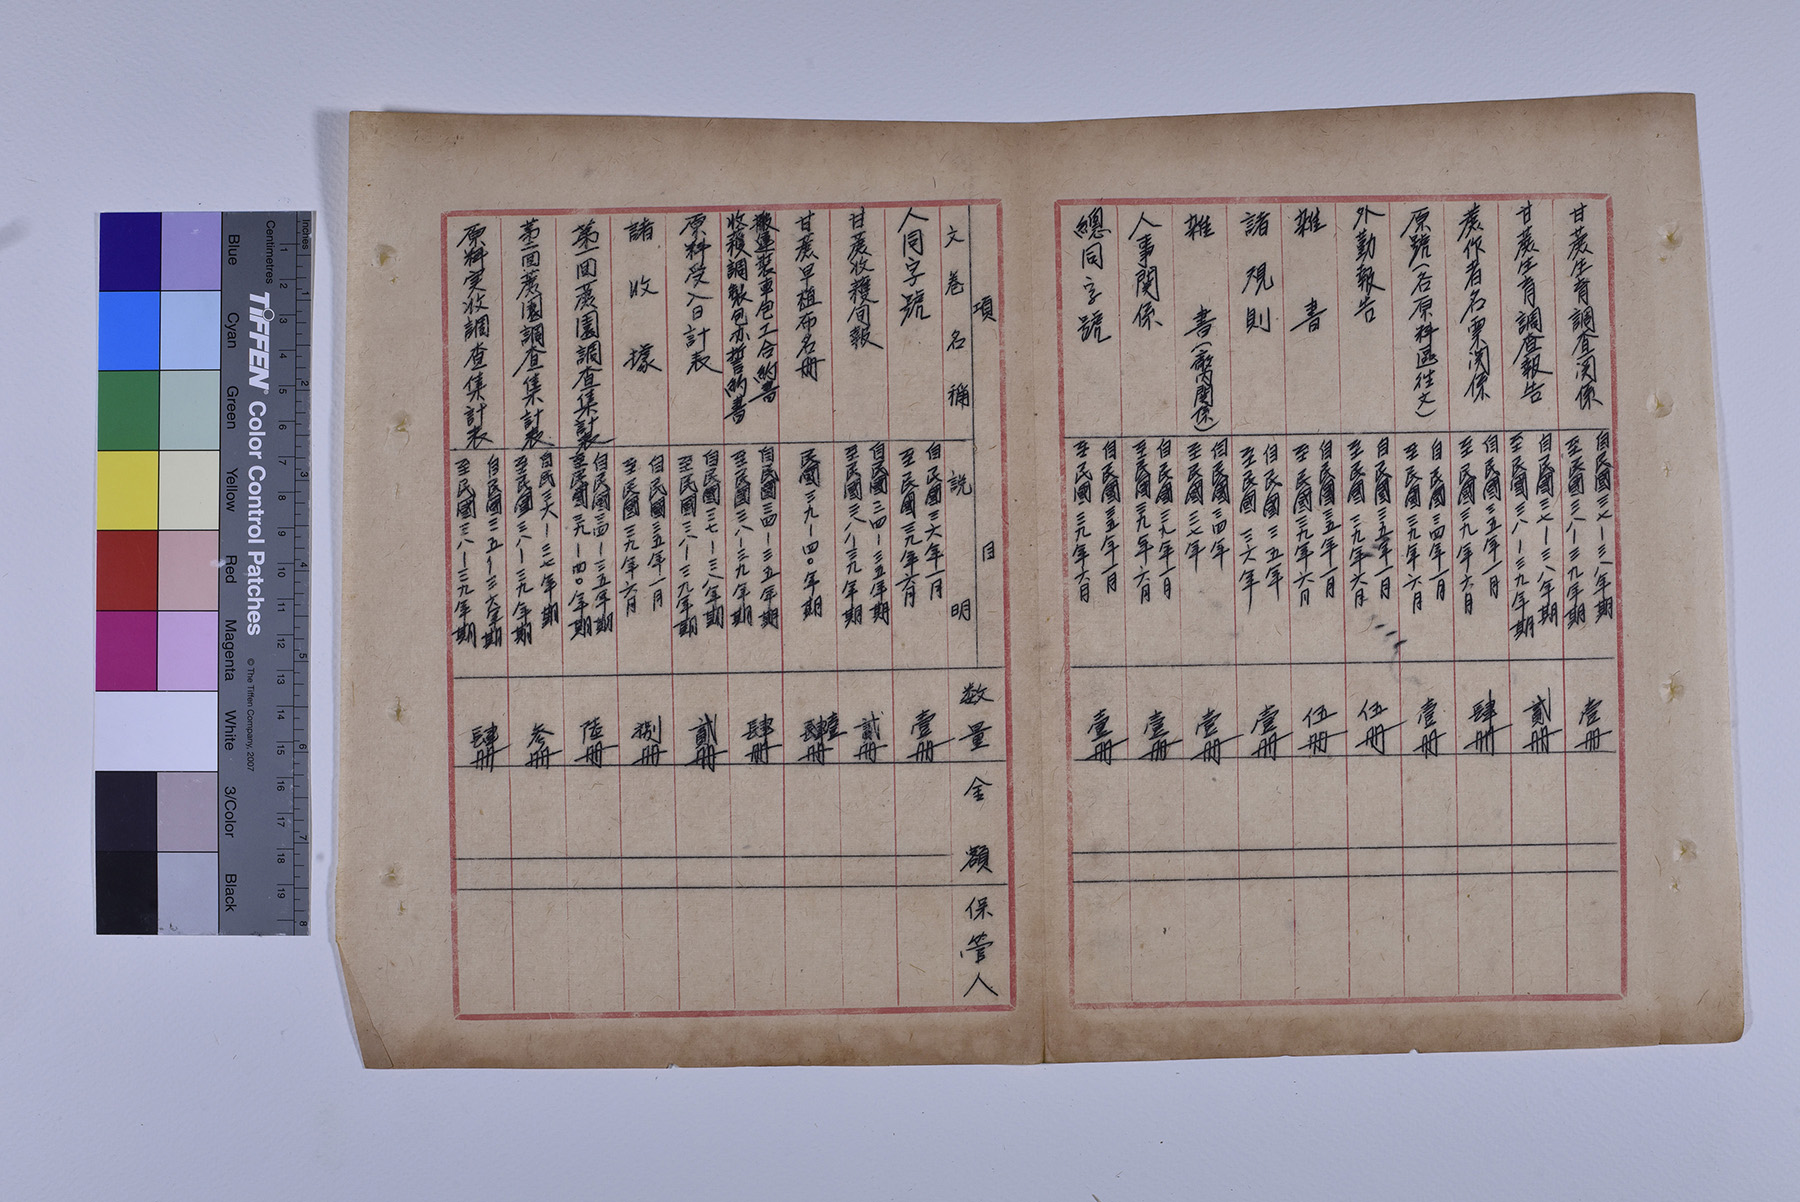 甘蔗生育調查関係
自民國三七-三八年期
至民國三八-三九年期
壹册
甘蔗生育調查報告
自民國三七-三八年期
至民國三八-三九年期
貳册
蔗作者名票関係
自民國三五年一月
至民國三九年六月
肆册
原號(各原料區往文)
自民國三四年一月
至民國三九年六月
壹册
外勤報告
自民國三五年一月
至民國三九年六月
伍册
雜書
自民國三五年一月
至民國三九年六月
伍册
諸規則
自民國三五年
至民國三六年
壹册
雜書(廠內關係)
自民國三四年
至民國三七年
壹册
人事関係
自民國三九年一月
至民國三九年六月
壹册
總同字號
自民國三五年一月
至民國三九年六月
壹册
項目
文卷名稱
説明
数量
金額
保管人
人同字號
自民國三六年一月
至民國三九年六月
壹册
甘蔗收穫旬報
自民國三四-三五年期
至民國三八-三九年期
貳册
甘蔗早植布名册
民國三九-四〇年期
肆册
搬運裝車包工合約書
收穫調製包亦誓約書
自民國三四-三五年期
至民國三八-三九年期
肆册
原料受入日計表
自民國三七-三八年期
至民國三八-三九年期
貳册
諸收據
自民國三五年一月
至民國三九年六月
捌册
第一回蔗園調查集計表
自民國三四-三五年期
至民國三九-四〇年期
陸册
第二回蔗園調查集計表
自民三六-三七年期
至民國三八-三九年期
叁册
原料实收調查集計表
自民國三五-三六年期
至民國三八-三九年期
肆册
Inches
Centimetres
TIFFEN® Color Control Patches
© The Tiffen Company, 2007
Blue
Cyan
Green
Yellow
Red
Magenta
White
3/Color
Black